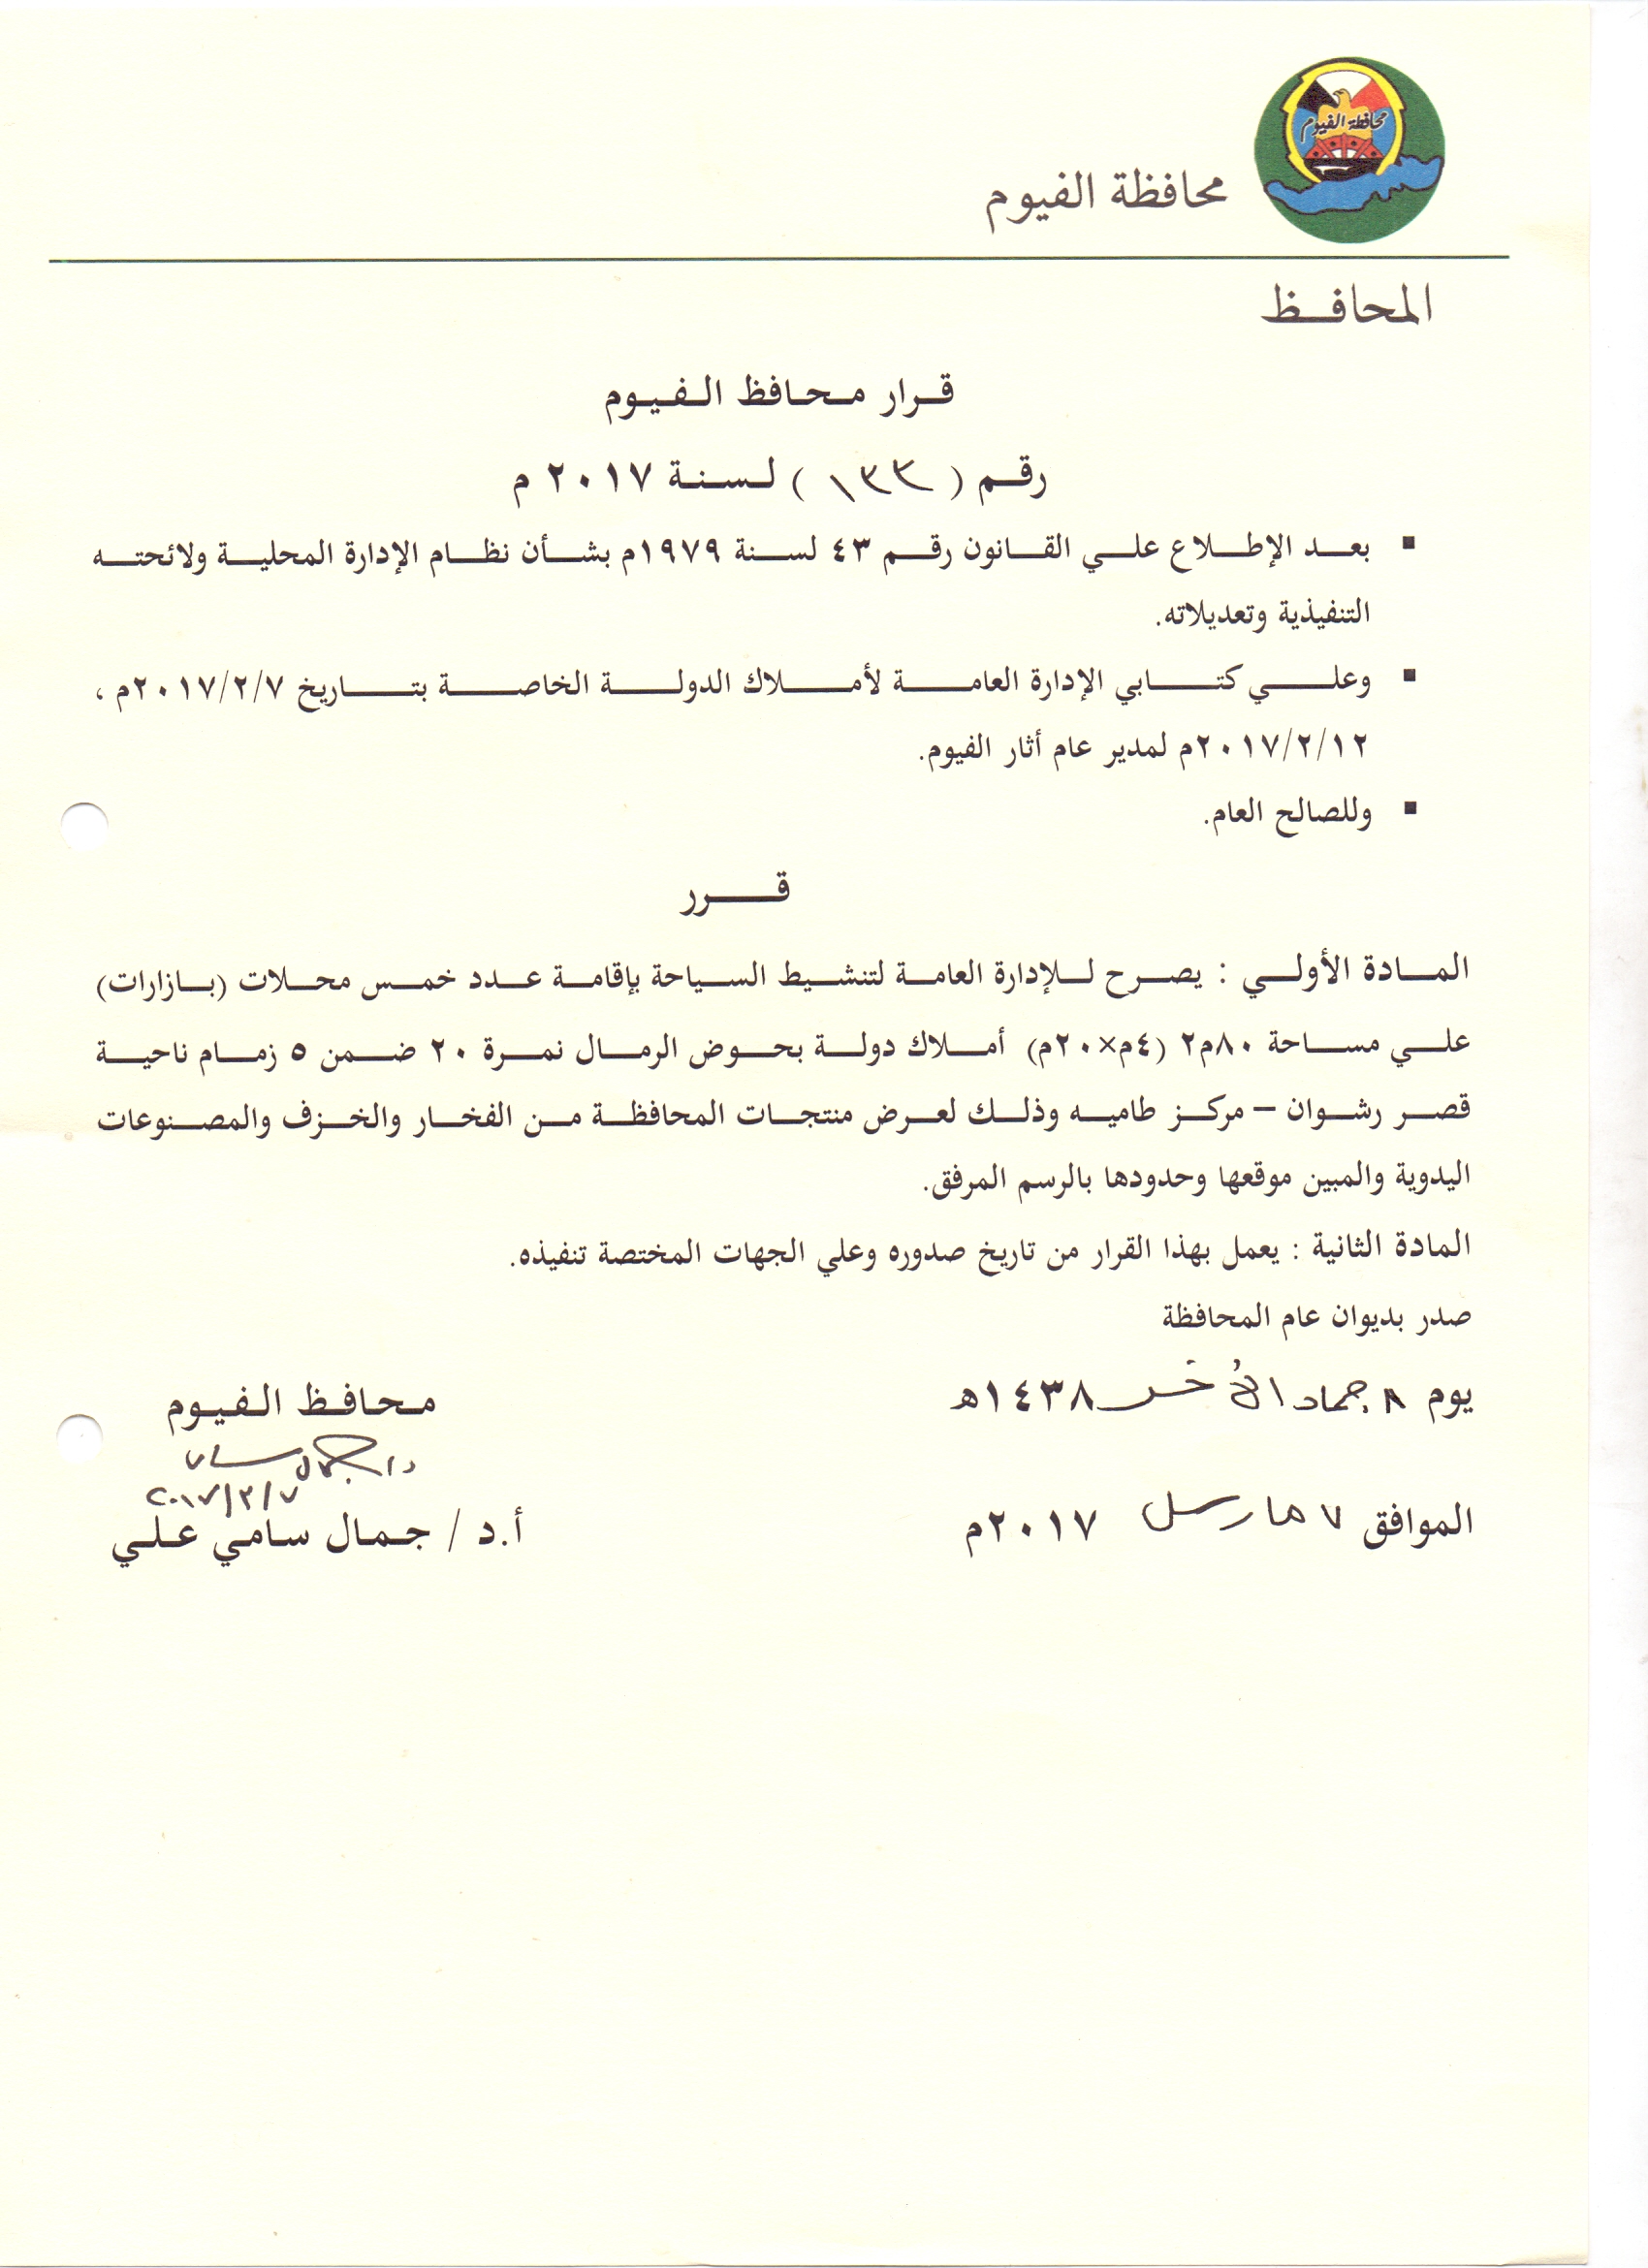 محافظة الفيوم
محافظة الفيوم
المحافظ
قرار محافظ الفيوم
رقم ( ١٣٣ ) لسنة ٢٠١٧ م
▪ بعد الإطلاع علي القانون رقم ٤٣ لسنة ١٩٧٩م بشأن نظام الإدارة المحلية ولائحته
التنفيذية وتعديلاته.
▪ وعلي كتابي الإدارة العامة لأملاك الدولة الخاصة بتاريخ ٢٠١٧/٢/٧م ،
٢٠١٧/٢/١٢م لمدير عام أثار الفيوم.
▪ وللصالح العام.
قرر
المادة الأولي : يصرح للإدارة العامة لتنشيط السياحة بإقامة عدد خمس محلات (بازارات)
علي مساحة ٨٠م٢ (٤م×٢٠م) أملاك دولة بحوض الرمال نمرة ٢٠ ضمن ٥ زمام ناحية
قصر رشوان – مركز طاميه وذلك لعرض منتجات المحافظة من الفخار والخزف والمصنوعات
اليدوية والمبين موقعها وحدودها بالرسم المرفق.
المادة الثانية : يعمل بهذا القرار من تاريخ صدوره وعلي الجهات المختصة تنفيذه.
صدر بديوان عام المحافظة
يوم ٨ جماد الآخر ١٤٣٨ه
الموافق ٧ مارس ٢٠١٧م
محافظ الفيوم
٢٠١٧/٣/٧
أ.د / جمال سامي علي